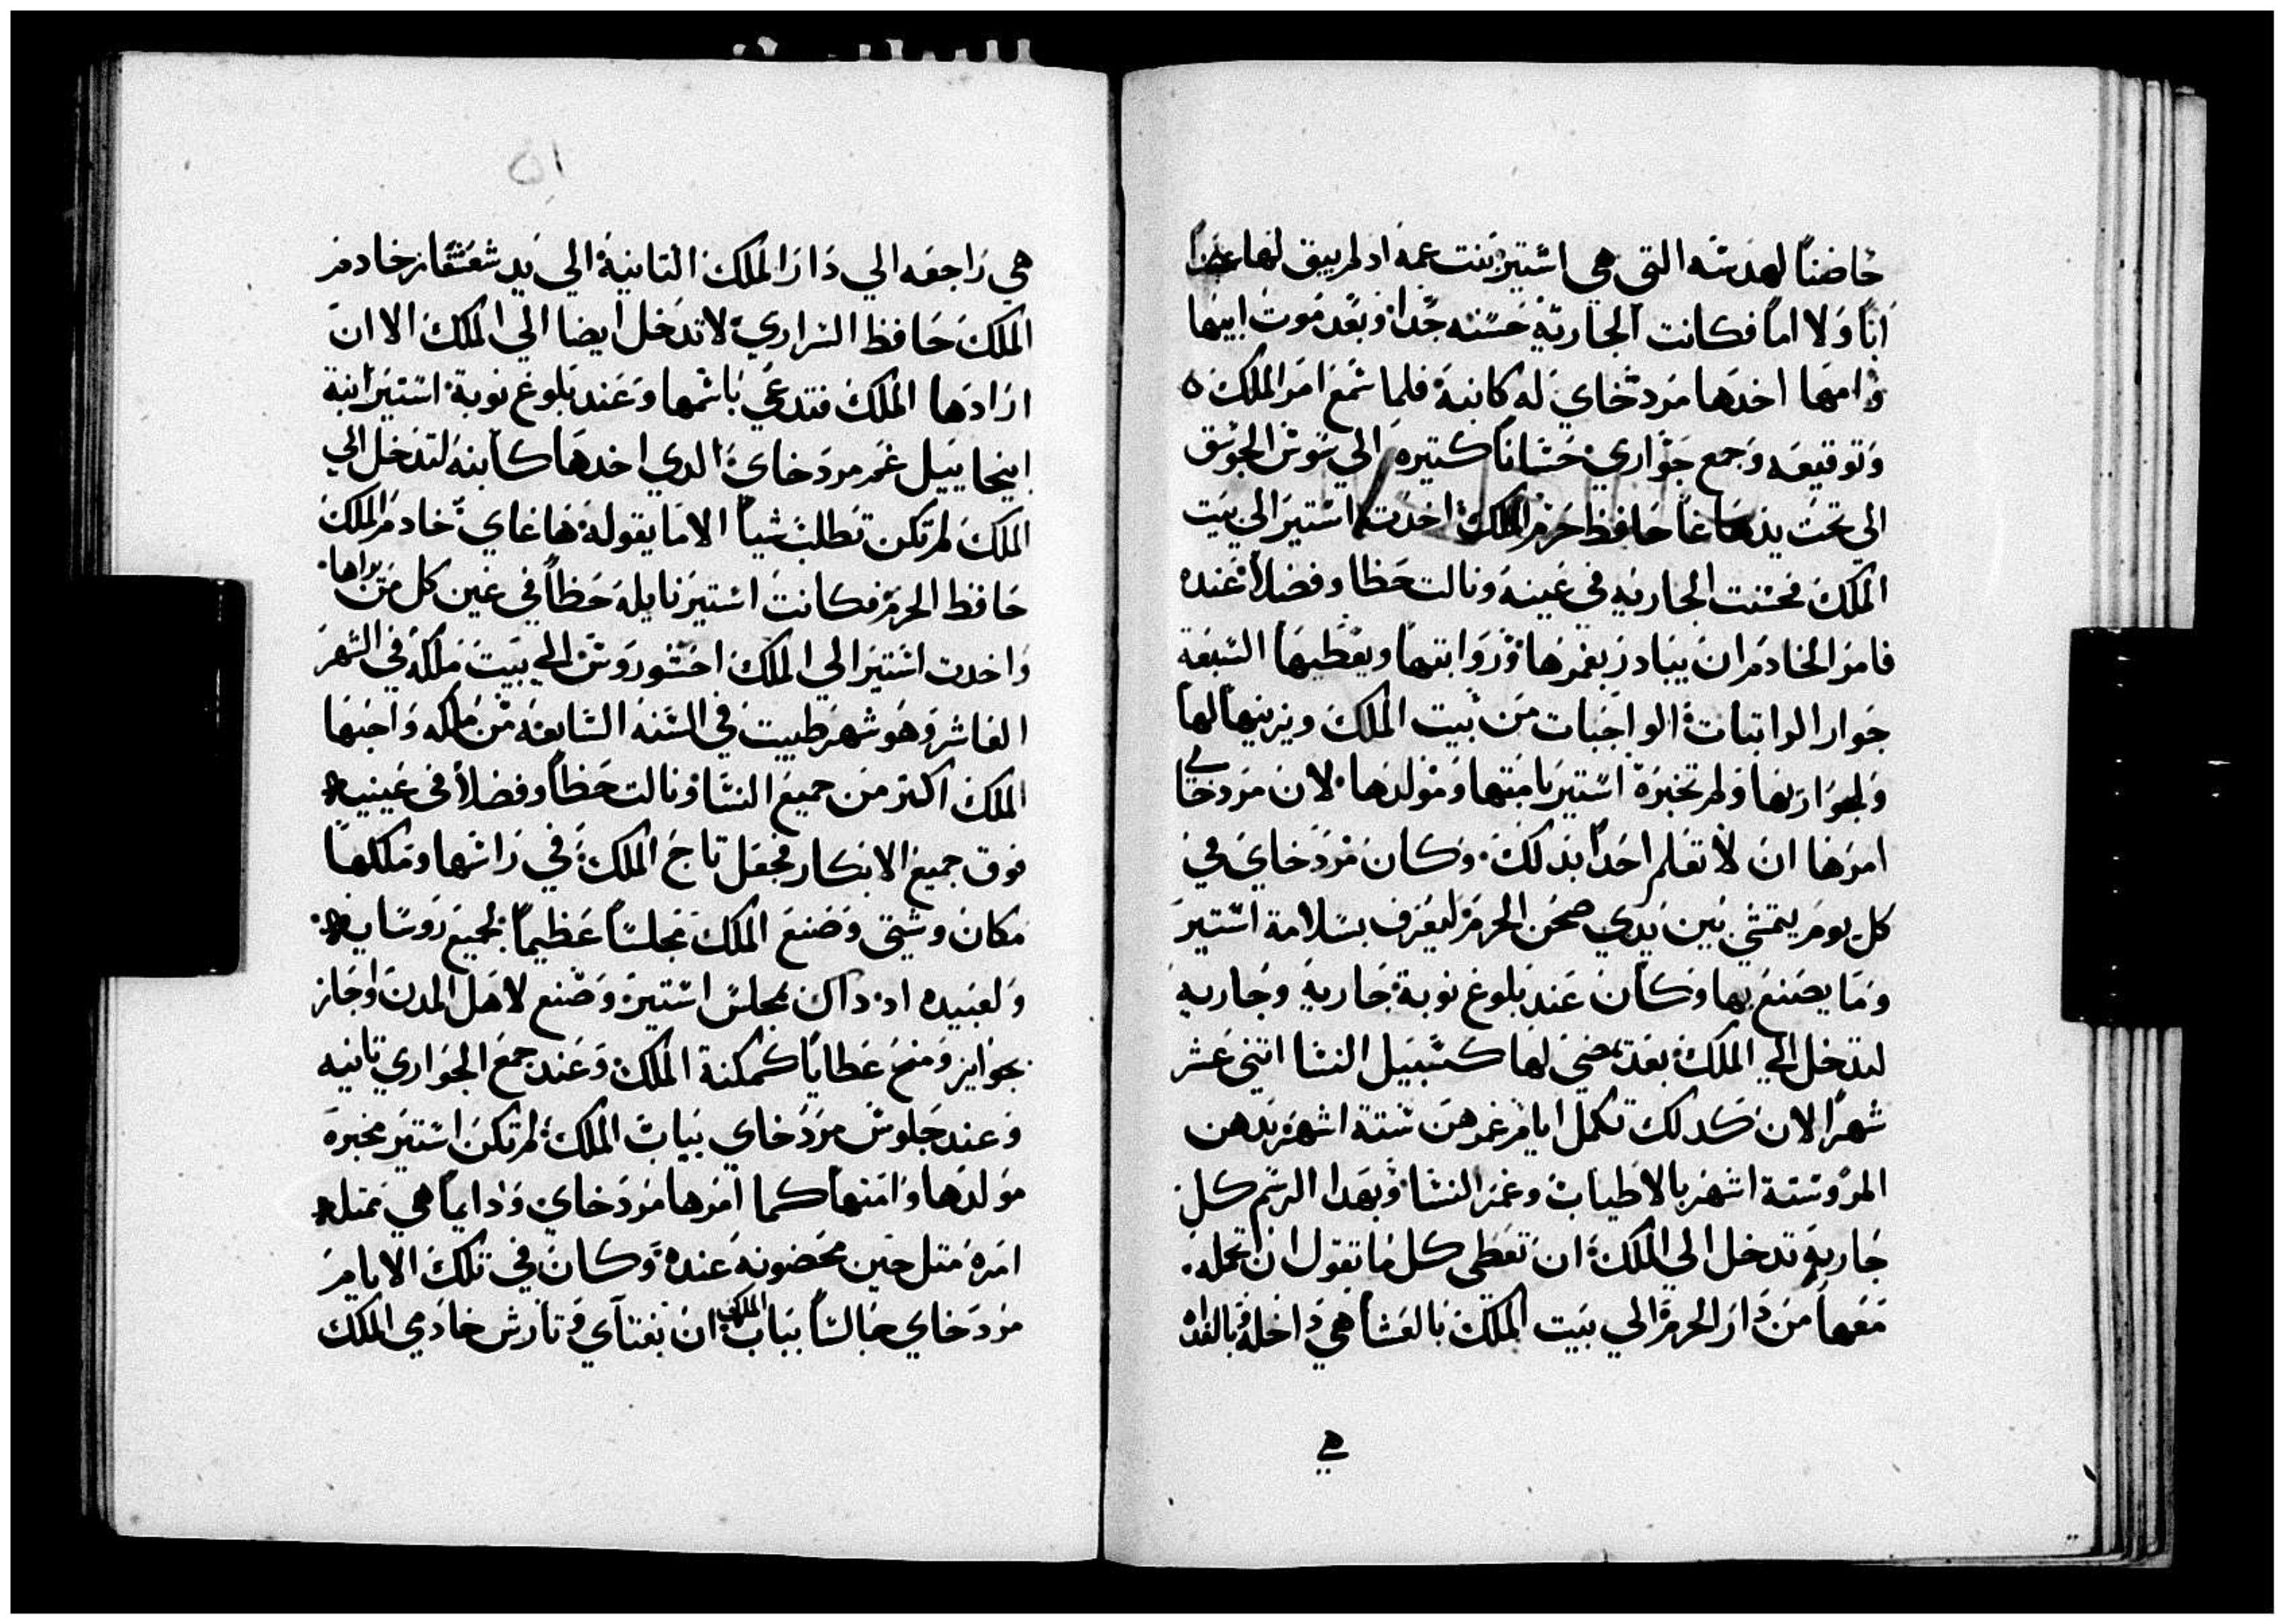 حاضنًا لهدسه التي هي استير بنت عمه اد لم يبق لها
ابًا ولا امًا فكانت الجاريه حسنه جدًا وبعد موت ابيها
وامها اخدها مردخاي له كابنة فلما سمع امر الملك ه
وتوقيعه وجمع جواري حسانًا كتيره الي سوس الجوسق
الي تحت يد هاغا حافظ حرم الملك اخدت استير الي بيت
الملك فحسنت الجاريه في عينه ونالت حظا وفضلًا عنده
فامر الخادم ان يبادر بغمرها ورواتبها ويعطيها السبعة
جوار الراتبات الواجبات من بيت الملك ويزينها لها
ولجوارها ولم تخبره استير بامتها ومولدها لان مردخاي
امرها ان لا تعلم احدًا بدلك وكان مردخاي في
كل يوم يتمشي بين يدي صحن الحرم ليعرف بسلامة استير
وما يصنع بها وكان عند بلوغ نوبة جارية وجارية
لتدخل الي الملك بعد مضي لها كسبيل النسا اتني عشر
شهرًا لان كدلك تكمل ايام غمرهن ستة اشهر بدهن
المر وستة اشهر بالاطياب وغمر النسا وبهدا الرسم كل
جارية تدخل الي الملك ان تعطي كل ما تقول ان تحمله
معها من دار الحرم الي بيت الملك بالعشا هي داخلة وبالغداه
هي
٥١
هي راجعه الي دار الملك التانية الي يد شعشقاز خادم
الملك حافظ السراري لا تدخل ايضا الي الملك الا ان
ارادها الملك فتدعي باسمها وعند بلوغ نوبة استير ابنة
ابيحاييل عم مردخاي الدي اخدها كابنه لتدخل الي
الملك لم تكن تطلب شيا الا ما يقوله هاغاي خادم الملك
حافظ الحرم فكانت استير نايله حظًا في عين كل من يراها
واخدت استير الي الملك احشوروش الي بيت ملكه في الشهر
العاشر وهو شهر طبيت في السنه السابعه من ملكه واحبها
الملك اكتر من جميع النسا ونالت حظًا وفضلًا في عينيه
فوق جميع الابكار فجعل تاج الملك في راسها وملكها
مكان وشتي وصنع الملك مجلسًا عظيمًا لجميع روسايه
ولعبيده اد داك مجلس استير وصنع لاهل المدن واجاز
بجوايز ومنح عطايا كمكنة الملك وعند جمع الجواري تانيه
وعند جلوس مردخاي بباب الملك لم تكن استير مخبره
مولدها وامتها كما امرها مردخاي ودايمًا هي تمتل
امره متل حين محضونه عنده وكان في تلك الايام
مردخاي جالسًا بباب الملك ان بغتاي وتارش خادمي الملك